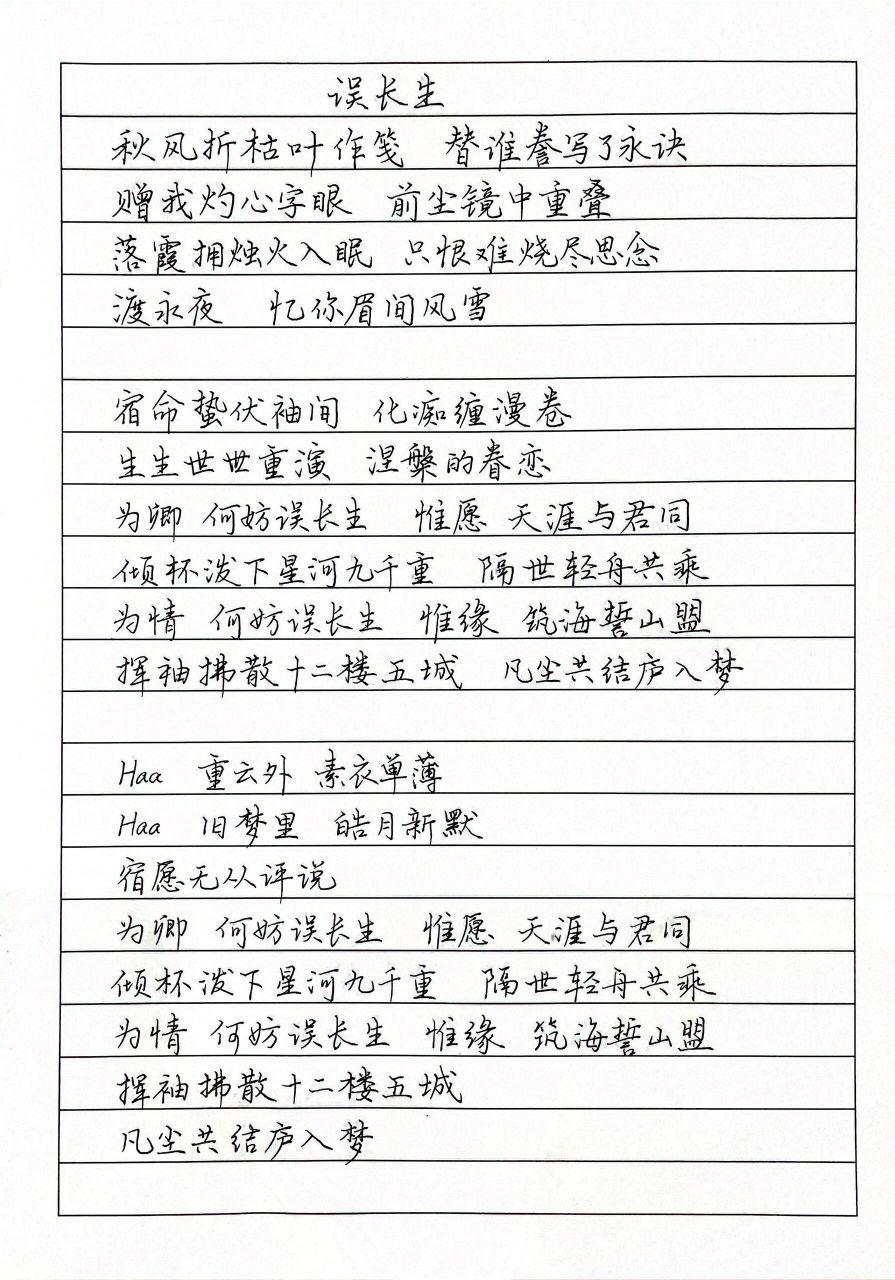 误长生
秋风折枯叶作笺 替谁誊写了永诀
赠我灼心字眼 前尘镜中重叠
落霞拥烛火入眠 只恨难烧尽思念
渡永夜 忆你眉间风雪
宿命蛰伏袖间 化痴缠漫卷
生生世世重演 涅槃的眷恋
为卿 何妨误长生 惟愿 天涯与君同
倾杯泼下星河九千重 隔世轻舟共乘
为情 何妨误长生 惟缘 筑海誓山盟
挥袖拂散十二楼五城 凡尘共结庐入梦
Haa 重云外 素衣单薄
Haa 旧梦里 皓月新默
宿愿无从评说
为卿 何妨误长生 惟愿 天涯与君同
倾杯泼下星河九千重 隔世轻舟共乘
为情 何妨误长生 惟缘 筑海誓山盟
挥袖拂散十二楼五城
凡尘共结庐入梦